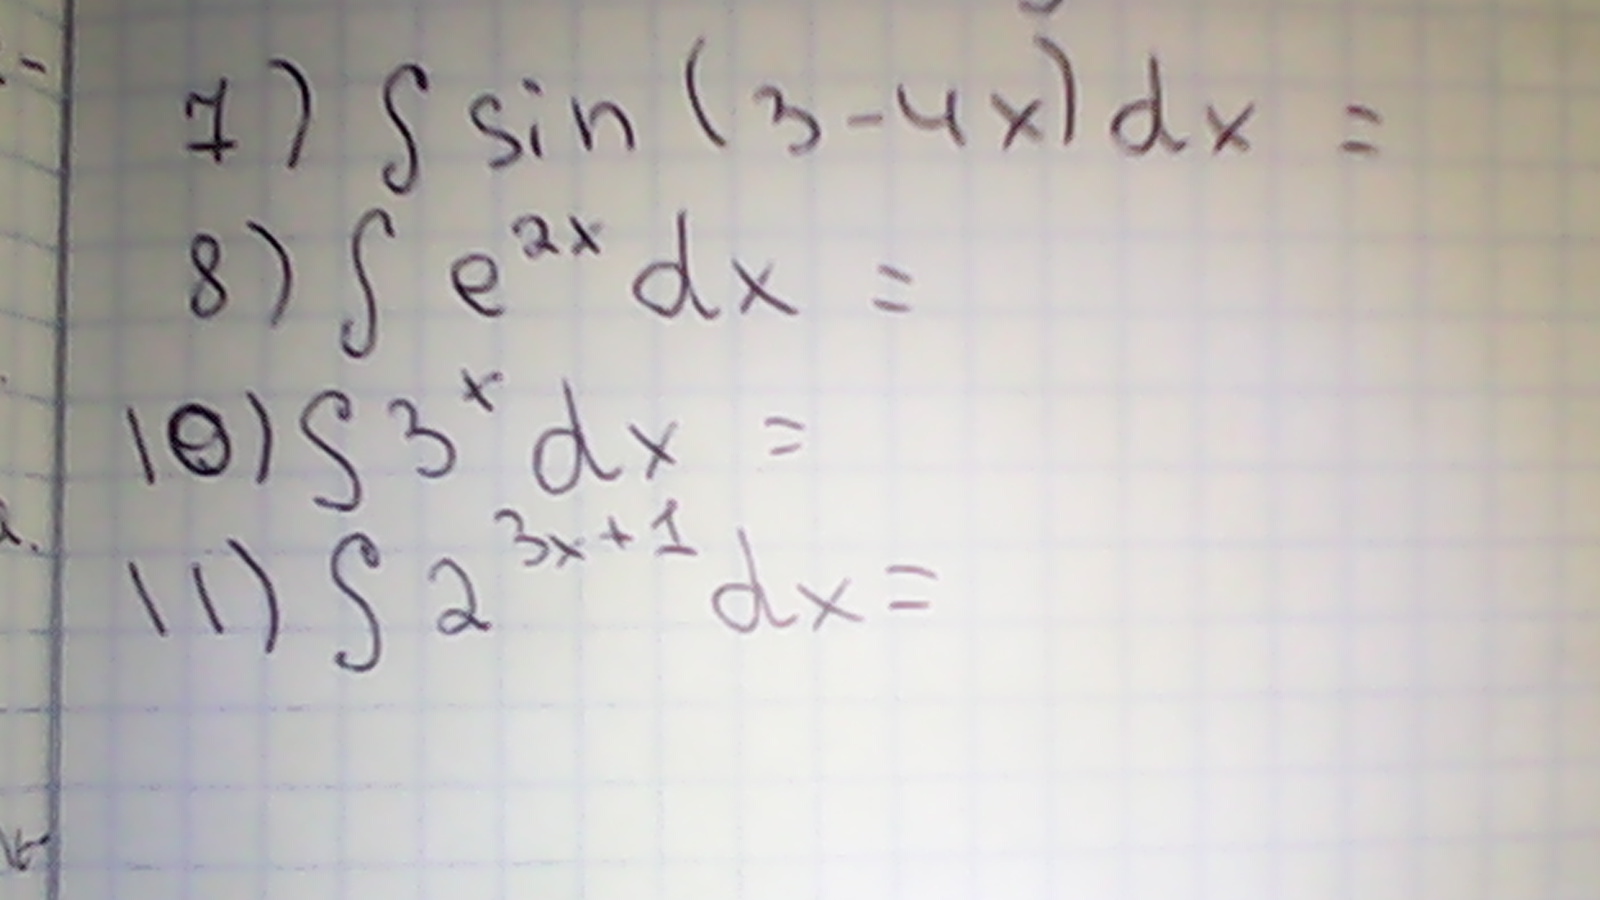 7) ∫ sin (3-4x) dx =
8) ∫ e^{2x} dx =
10) ∫ 3^x dx =
11) ∫ 2^{3x+1} dx =